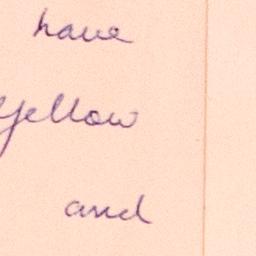 have
yellow
and